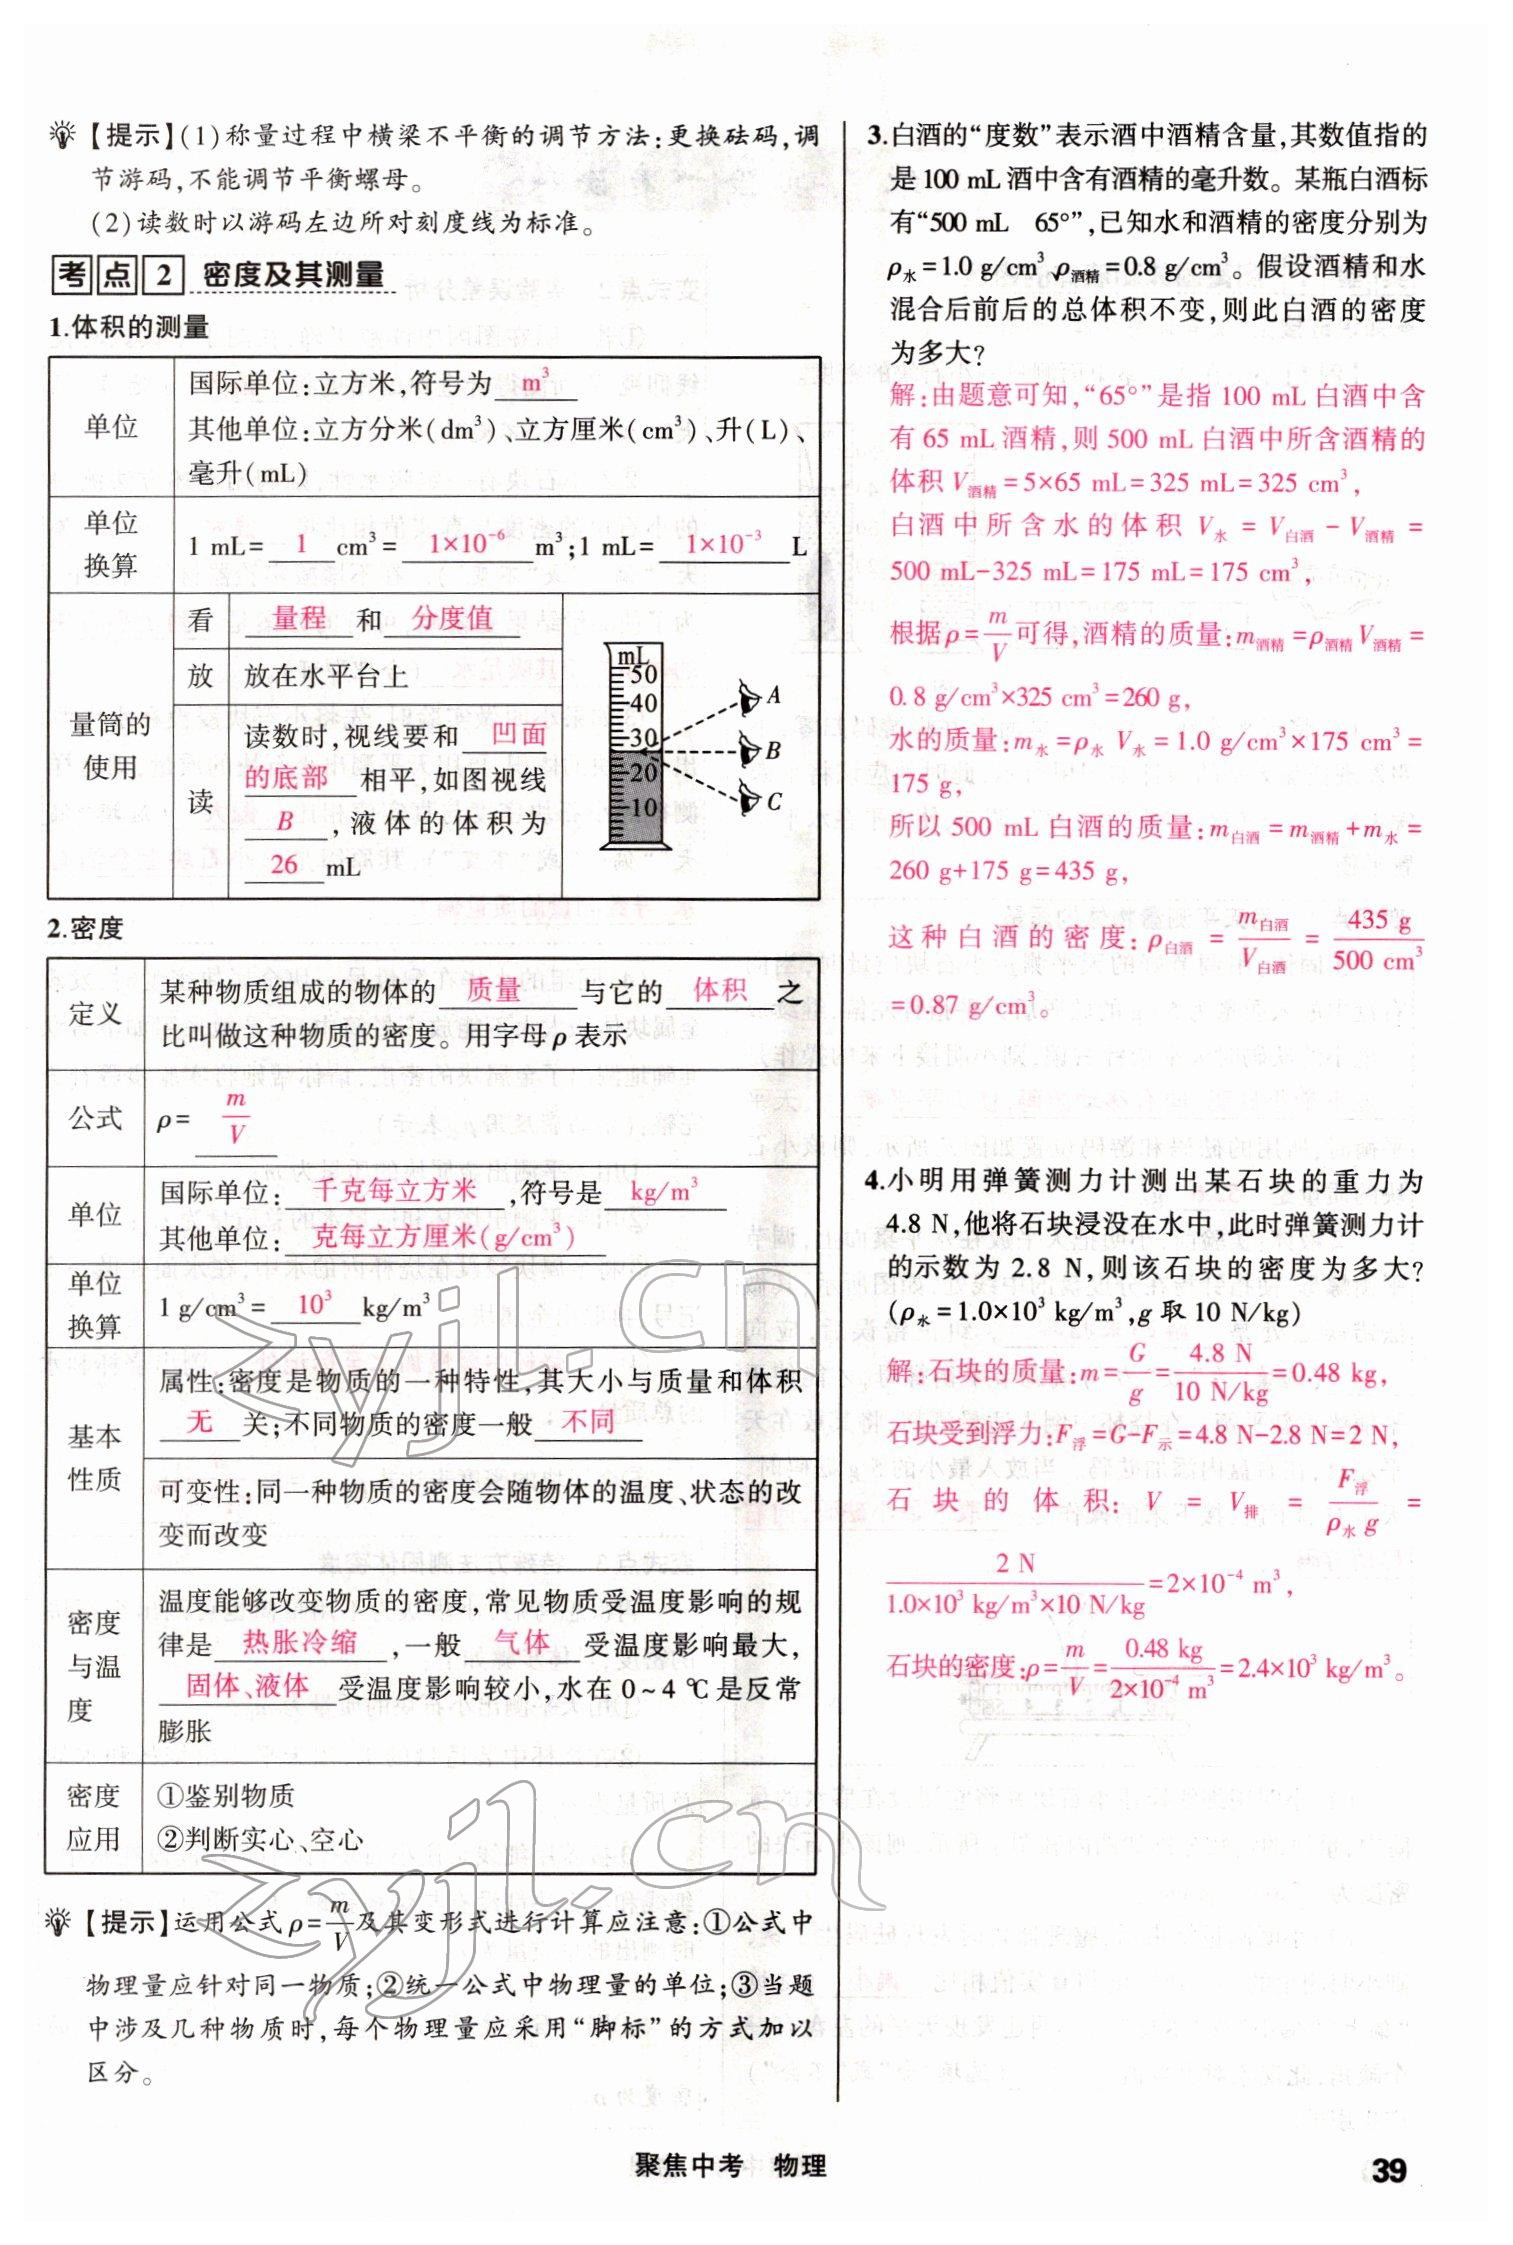 【提示】(1)称量过程中横梁不平衡的调节方法:更换砝码,调
节游码,不能调节平衡螺母。
(2)读数时以游码左边所对刻度线为标准。
考点2 密度及其测量
1.体积的测量
单位
国际单位:立方米,符号为 m³
其他单位:立方分米(dm³)、立方厘米(cm³)、升(L)、
毫升(mL)
单位
换算
1 mL= 1 cm³= 1×10⁻⁶ m³;1 mL= 1×10⁻³ L
量筒的
使用
看
量程 和 分度值
放
放在水平台上
读
读数时,视线要和 凹面
的底部 相平,如图视线
B ,液体的体积为
26 mL
mL
50
40
30
20
10
A
B
C
2.密度
定义
某种物质组成的物体的 质量 与它的 体积 之
比叫做这种物质的密度。用字母ρ表示
公式
ρ= m/V
单位
国际单位: 千克每立方米 ,符号是 kg/m³
其他单位: 克每立方厘米(g/cm³)
单位
换算
1 g/cm³= 10³ kg/m³
基本
性质
属性:密度是物质的一种特性,其大小与质量和体积
无 关;不同物质的密度一般 不同
可变性:同一种物质的密度会随物体的温度、状态的改
变而改变
密度
与温
度
温度能够改变物质的密度,常见物质受温度影响的规
律是 热胀冷缩 ,一般 气体 受温度影响最大,
固体、液体 受温度影响较小,水在0~4 ℃是反常
膨胀
密度
应用
①鉴别物质
②判断实心、空心
【提示】运用公式ρ=m/V及其变形式进行计算应注意:①公式中
物理量应针对同一物质;②统一公式中物理量的单位;③当题
中涉及几种物质时,每个物理量应采用“脚标”的方式加以
区分。
3.白酒的“度数”表示酒中酒精含量,其数值指的
是100 mL酒中含有酒精的毫升数。某瓶白酒标
有“500 mL 65°”,已知水和酒精的密度分别为
ρ水=1.0 g/cm³、ρ酒精=0.8 g/cm³。假设酒精和水
混合后前后的总体积不变,则此白酒的密度
为多大?
解:由题意可知,“65°”是指100 mL白酒中含
有65 mL酒精,则500 mL白酒中所含酒精的
体积V酒精=5×65 mL=325 mL=325 cm³,
白酒中所含水的体积V水=V白酒-V酒精=
500 mL-325 mL=175 mL=175 cm³,
根据ρ=m/V可得,酒精的质量:m酒精=ρ酒精V酒精=
0.8 g/cm³×325 cm³=260 g,
水的质量:m水=ρ水 V水=1.0 g/cm³×175 cm³=
175 g,
所以500 mL白酒的质量:m白酒=m酒精+m水=
260 g+175 g=435 g,
这种白酒的密度:ρ白酒=m白酒/V白酒=435 g/500 cm³
=0.87 g/cm³。
4.小明用弹簧测力计测出某石块的重力为
4.8 N,他将石块浸没在水中,此时弹簧测力计
的示数为2.8 N,则该石块的密度为多大?
(ρ水=1.0×10³ kg/m³,g取10 N/kg)
解:石块的质量:m=G/g=4.8 N/10 N/kg=0.48 kg,
石块受到浮力:F浮=G-F示=4.8 N-2.8 N=2 N,
石块的体积:V=V排=F浮/ρ水g=
2 N/1.0×10³ kg/m³×10 N/kg=2×10⁻⁴ m³,
石块的密度:ρ=m/V=0.48 kg/2×10⁻⁴ m³=2.4×10³ kg/m³。
zyjl.cn
zyjl.cn
聚焦中考 物理
39